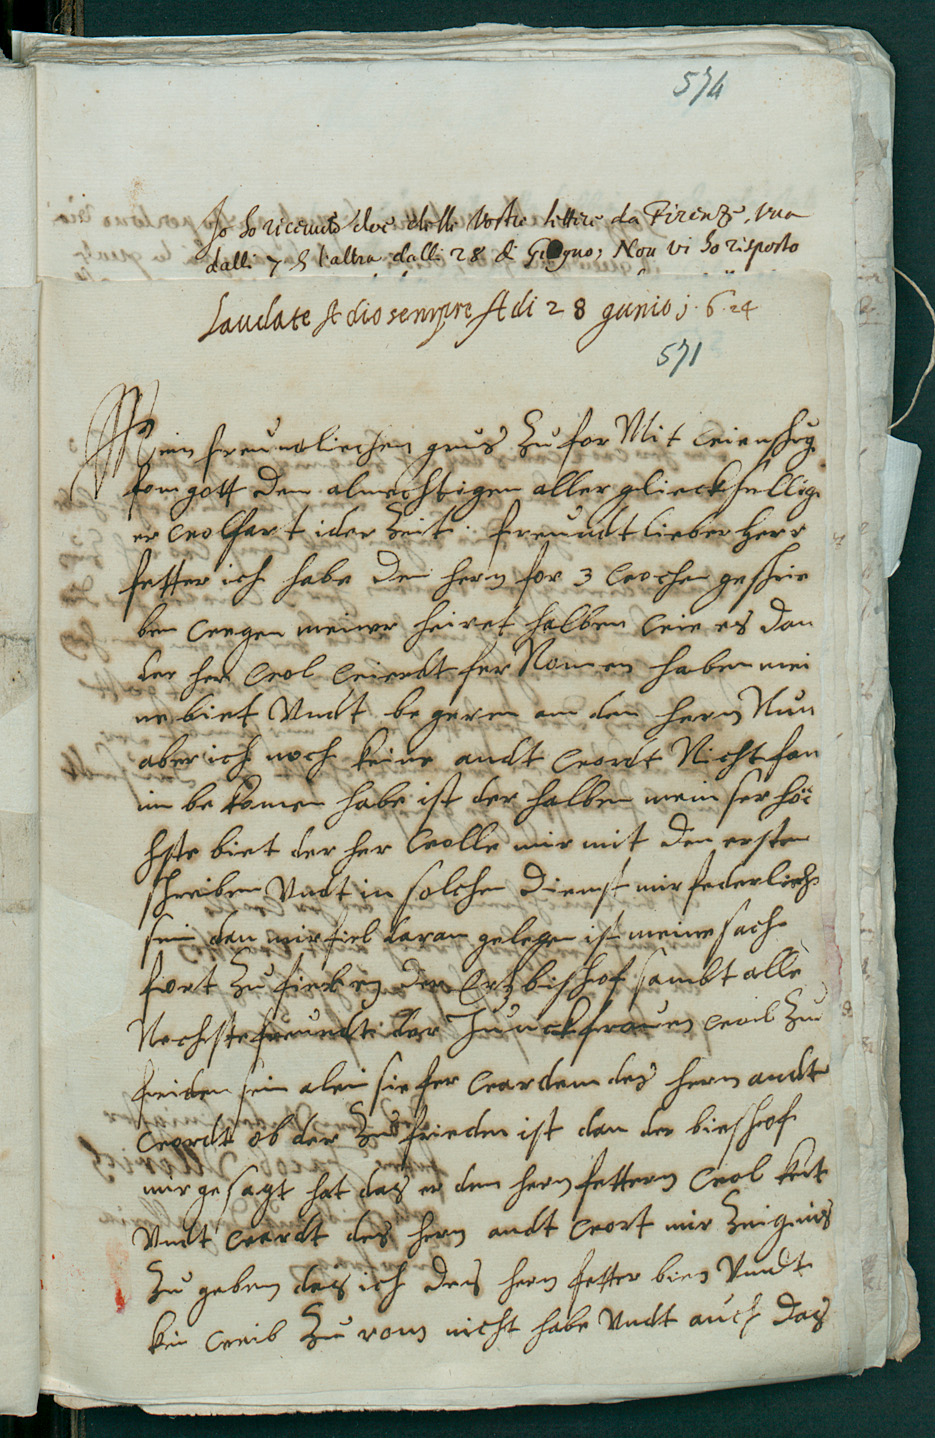 574
Io ho riceuuto doe delle Vostre lettere da Firenze, vna
dalli 7 & l'altra dalli 28 di Giogno; Non vi ho risposto
Laudate A dio sempre A di 28 gunio j 6 24
571
Mein freundtlichen grus zu for Mit winschug
fom gott dem almechtigen aller glieckselligs
er wolfart ider Zeit. freundt lieber herr
fetter ich habe dem hern for 3 wochen geschrie
ben wegen meiner heiret halben wie es dan
der her wol wierdt fer Nomen haben mei
ne biet Vndt begeren an den hern Nun
aber ich noch keine andt wordt Nicht fan
im be komen habe ist der halben mein ser höc
hste biet der her wolle mir mit den ersten
schreiben Vndt in solchen dienst mir federlich
sein dan mir fiel daran gelegen ist meine sach
fort Zu sieken der Ertzbischof sambt alle
Nechste freundt der Junckfrauen woil Zu
frieden sein alein sie fer warden des hern andt
wordt ob der Zu frieden ist dan der bieschof
mir gesagt hat das er den hern fettern wol kent
Vndt wardt des hern andt wort mir Zeignis
Zu geben das ich des hern fetter bien Vndt
kein weib Zu rom nicht habe Vndt auch das